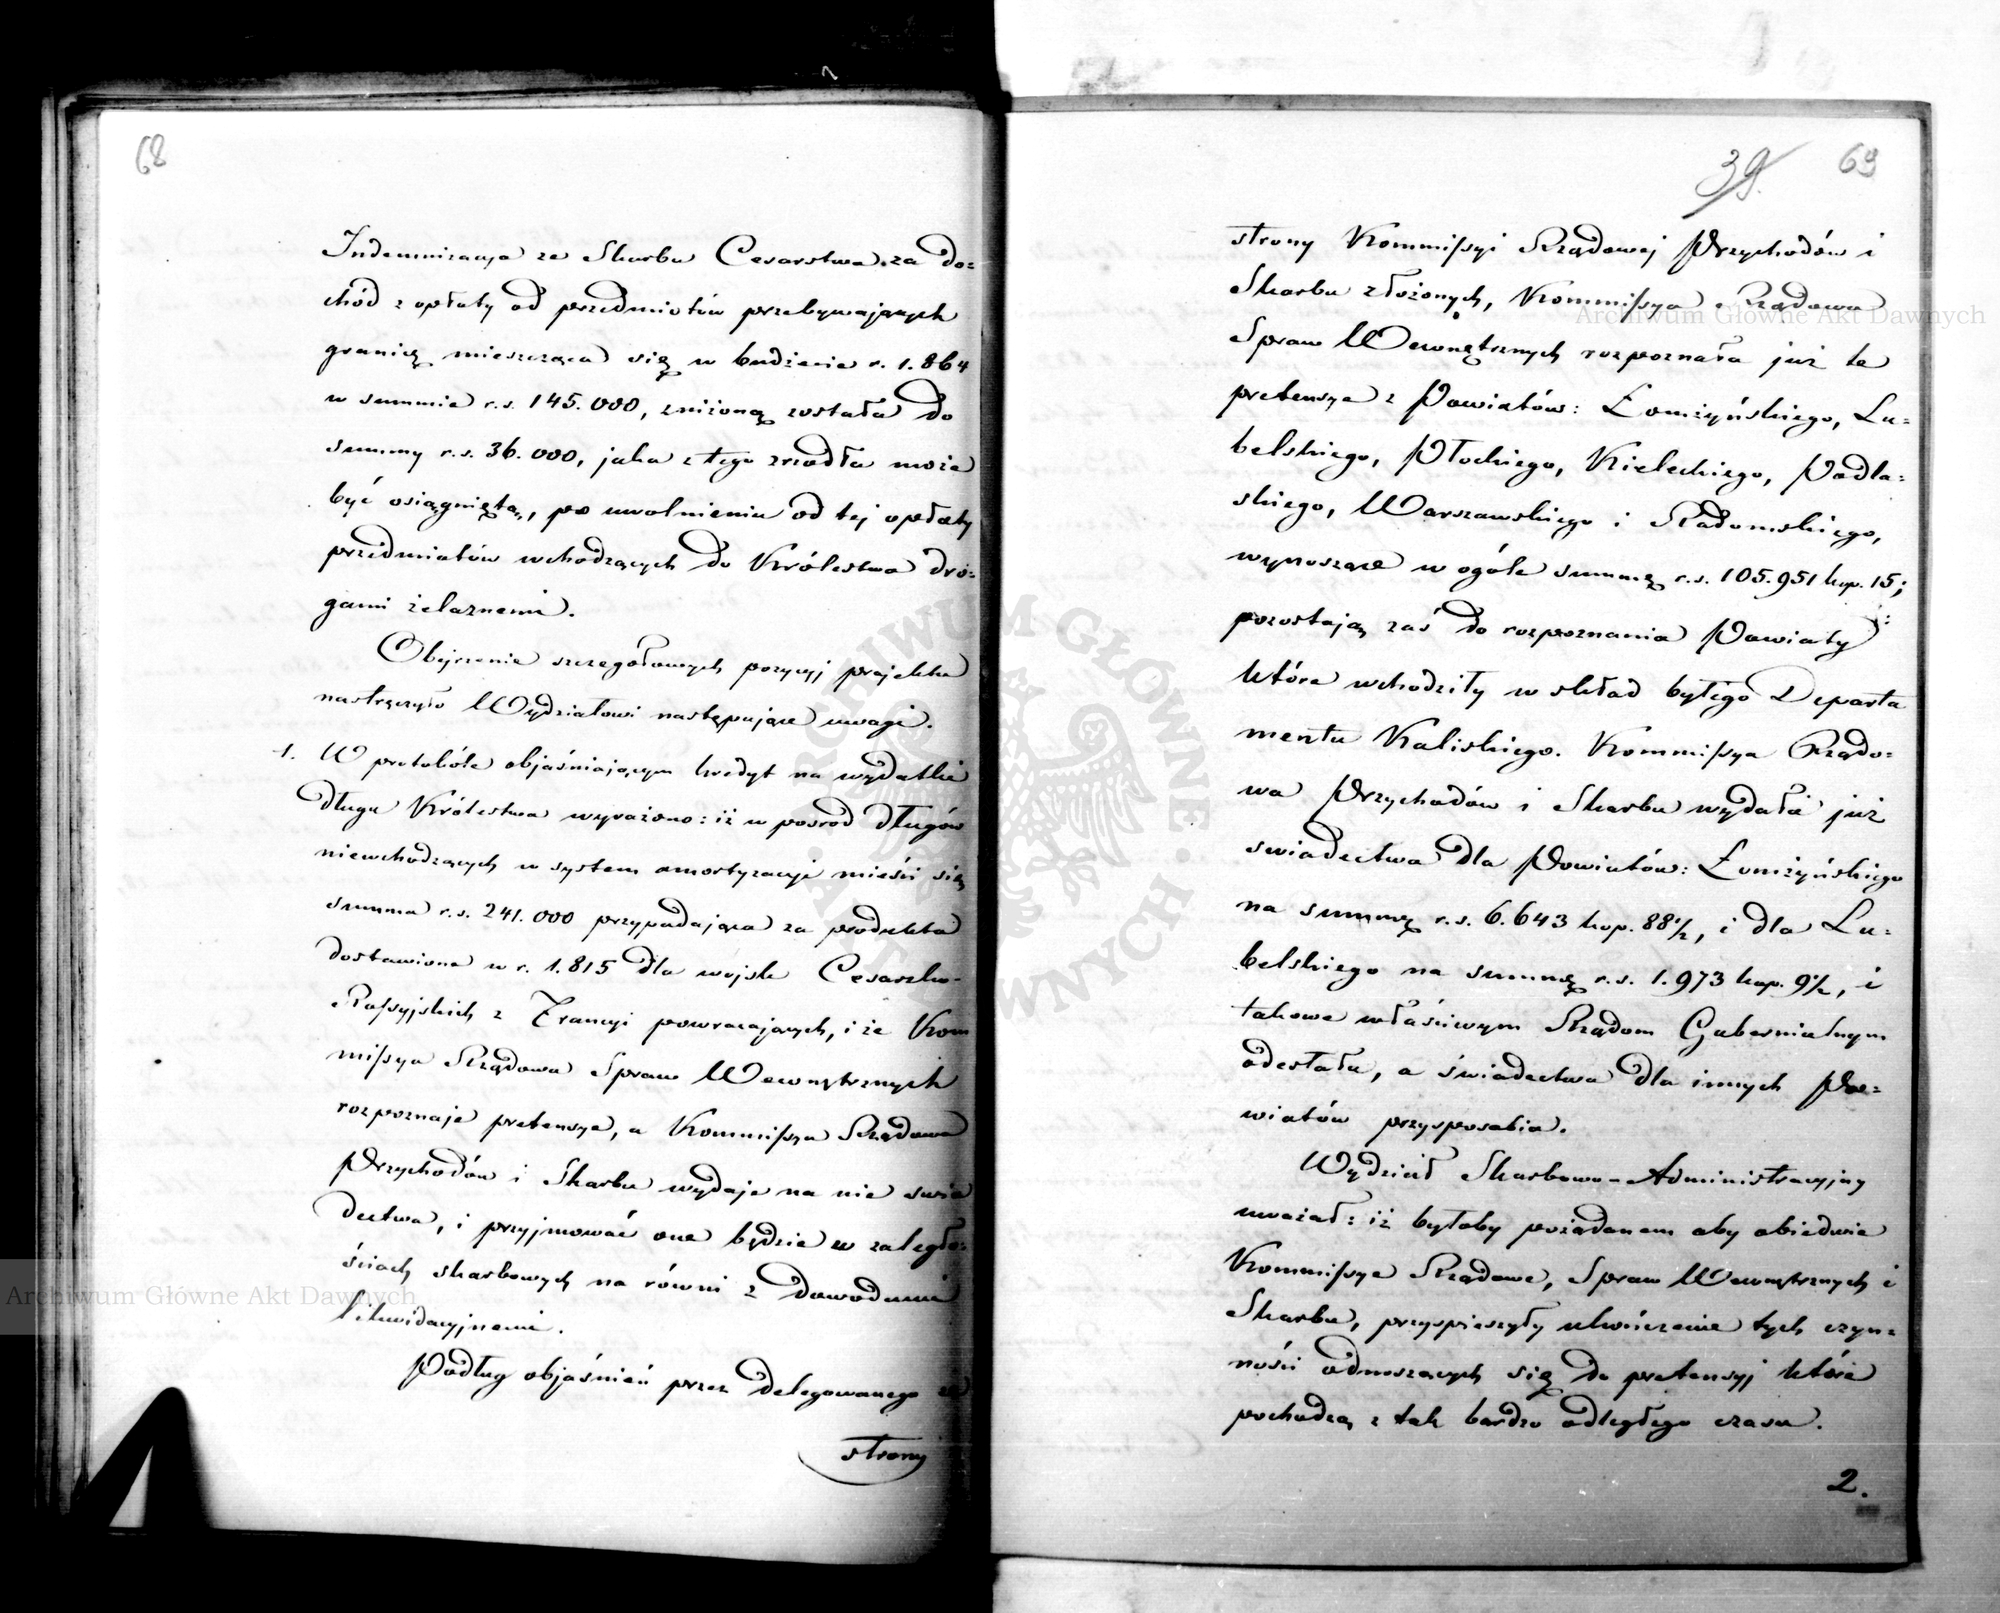 68
Indemnizacja ze Skarbu Cesarstwa za do=
chód z opłaty od przedmiotów przebywających
granicę mieszcząca się w budżecie r. 1.864
w summie r.s. 145.000, zniżoną została do
summy r.s. 36.000, jaka z tego źródła może
być osiągniętą, po uwolnieniu od tej opłaty
przedmiotów wchodzących do Królestwa dro=
gami żelaznemi.
Obejrzenie szczegółowych pozycyj projektu
nastręczyło Wydziałowi następujące uwagi.
1. W protokóle objaśniającym kredyt na wydatki
długu Królestwa wyrażono: iż w pośród długów
niewchodzących w system amortyzacyi mieści się
summa r.s. 241.000 przypadająca za produkta
dostawione w r. 1.815 dla wojsk Cesarsko-
Rossyjskich z Francyi powracających, i że Kom
missya Rządowa Spraw Wewnętrznych
rozpoznaje pretensye, a Kommissya Rządowa
Przychodów i Skarbu wydaje na nie świa
dectwa, i przyjmować one będzie w zaległo=
ściach skarbowych na równi z dowodami
likwidacyjnemi.
Podług objaśnień przez delegowanego ze
strony
39. 69
strony Kommissyi Rządowej Przychodów i
Skarbu złożonych, Kommissya Rządowa
Spraw Wewnętrznych rozpoznała już te
pretensye z Powiatów: Łomżyńskiego, Lu=
belskiego, Płockiego, Kieleckiego, Podla=
skiego, Warszawskiego i Radomskiego,
wynoszące w ogóle summę r.s. 105.951 kop. 15;
pozostają zaś do rozpoznania Powiaty
które wchodziły w skład byłego Departa
mentu Kaliskiego. Kommissya Rządo=
wa Przychodów i Skarbu wydała już
swiadectwa dla Powiatów: Łomżyńskiego
na summę r.s. 6.643 kop. 88½, i dla Lu=
belskiego na summę r.s. 1.973 kop. 9½, i
takowe właściwym Rządom Gubernialnym
odesłała, a świadectwa dla innych Po=
wiatów przysposabia.
Wydział Skarbowo-Administracyjny
uważał: iż byłoby pożądanem aby obiedwie
Kommissye Rządowe, Spraw Wewnętrznych i
Skarbu, przyspieszyły ukończenie tych czyn=
ności odnoszących się do pretensyj które
pochodzą z tak bardzo odległego czasu.
2.
Archiwum Główne Akt Dawnych
Archiwum Główne Akt Dawnych
ARCHIWUM GŁÓWNE AKT DAWNYCH